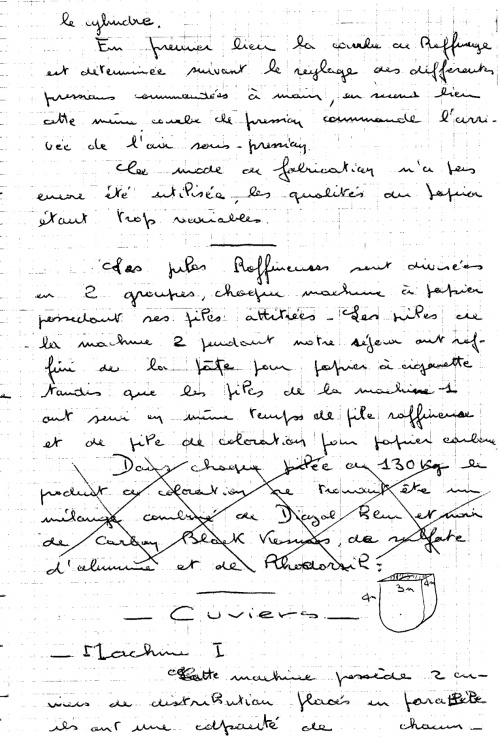 le cylindre.
En premier lieu la courbe de Raffinage
est déterminée suivant le réglage des différentes
pressions commandées à main, en second lieu
cette même courbe de pression commande l'arri-
vée de l'air sous-pression.
Ce mode de fabrication n'a pas
encore été utilisée, les qualités du papier
étant trop variables.
Les piles Raffineuses sont divisées
en 2 groupes, chaque machine à papier
possedant ses piles attitrées - Les piles de
la machine 2 pendant notre séjour ont raf-
finé de la pâte pour papier à cigarette
tandis que les piles de la machine 1
ont servi en même temps de pile raffineuse
et de pile de coloration pour papier carbone
Dans chaque pilée de 130 Kg le
produit de coloration se trouvant être un
mélange combiné de Diazol Bleu et noir
de Carbon Black Vesmos, de sulfate
d'alumine et de Rhodorsil :
4m 3m 4m
— Cuviers —
— Machine I
Cette machine possède 2 cu-
viers de distribution placés en parallèle
ils ont une capacité de chacun -